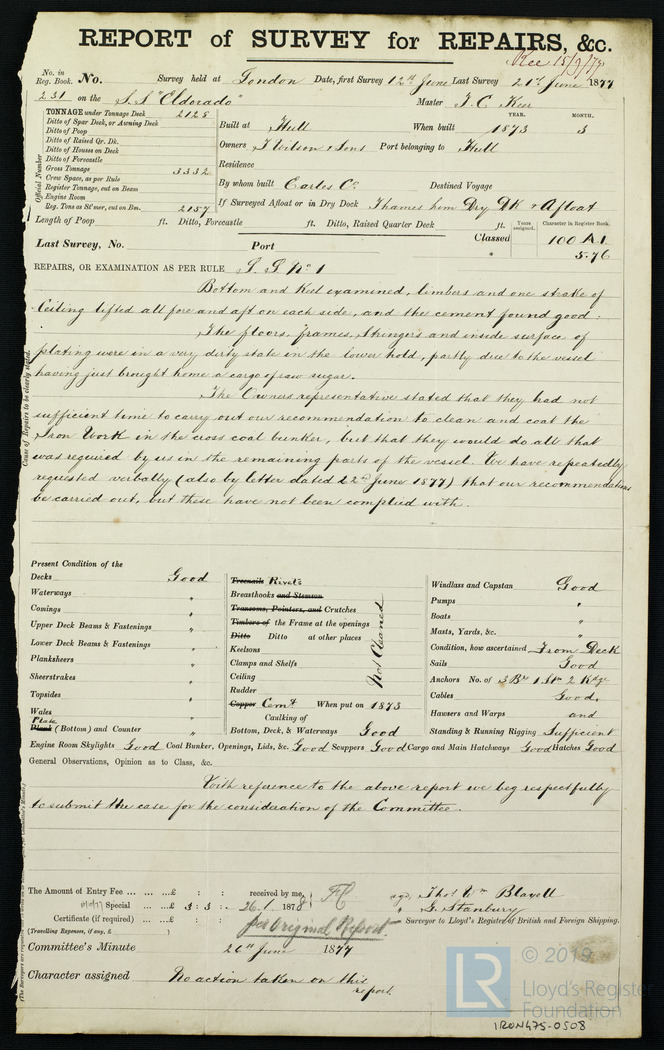 REPORT of SURVEY for REPAIRS, &c.
Rec 15/9/77
No. in Reg. Book. No. Survey held at London Date, first Survey 12th June Last Survey 21st June 1877
231 on the S.S "Eldorado" Master J. C. Keir
TONNAGE under Tonnage Deck 2128
Ditto of Spar Deck, or Awning Deck
Ditto of Poop
Ditto of Raised Qr. Dk.
Ditto of Houses on Deck
Ditto of Forecastle
Gross Tonnage 3332
Crew Space, as per Rule
Register Tonnage, cut on Beam
Engine Room
Reg. Tons as St'mer, cut on Bm. 2157
Official Number
YEAR. MONTH.
Built at Hull When built 1873 3
Owners T Wilson & Sons Port belonging to Hull
Residence
By whom built Earles Co. Destined Voyage
If Surveyed Afloat or in Dry Dock Thames Iron Dry Dk & Afloat
Length of Poop ft. Ditto, Forecastle ft. Ditto, Raised Quarter Deck ft.
Years assigned. Character in Register Book.
Last Survey, No. Port Classed 100 A.1
" 5.76
REPAIRS, OR EXAMINATION AS PER RULE S. S No 1
Bottom and Keel examined, limbers and one strake of
Ceiling lifted all fore and aft on each side, and the cement found good.
The floors, frames, Stringers and inside surface of
plating were in a very dirty state in the lower hold, partly due to the vessel
having just brought home a cargo of raw sugar.
The Owners representative stated that they had not
sufficient time to carry out our recommendation to clean and coat the
Iron Work in the cross coal bunker, but that they would do all that
was required by us in the remaining parts of the vessel. We have repeatedly
requested verbally (also by letter dated 22nd June 1877) that our recommendations
be carried out, but these have not been complied with.
Cause of Repairs to be clearly stated.
Present Condition of the
Decks Good
Waterways "
Comings "
Upper Deck Beams & Fastenings "
Lower Deck Beams & Fastenings "
Planksheers "
Sheerstrakes "
Topsides "
Wales "
Plate
Plank (Bottom) and Counter "
Treenails Rivets
Breasthooks and Stemson
Transoms, Pointers, and Crutches
Timbers of the Frame at the openings
Ditto Ditto at other places
Keelsons
Clamps and Shelfs
Ceiling
Rudder
Not Cleaned
Copper Cemt When put on 1873
Caulking of
Bottom, Deck, & Waterways Good
Windlass and Capstan Good
Pumps "
Boats "
Masts, Yards, &c. "
Condition, how ascertained From Deck
Sails Good
Anchors No. of 3 Br 1 Stm 2 Kdge
Cables Good,
Hawsers and Warps and
Standing & Running Rigging Sufficient
Engine Room Skylights Good Coal Bunker, Openings, Lids, &c. Good Scuppers Good Cargo and Main Hatchways Good Hatches Good
General Observations, Opinion as to Class, &c.
With reference to the above report we beg respectfully
to submit the case for the consideration of the Committee.
The Amount of Entry Fee ... ... ...£ : : received by me,
Special ... ...£ 3 : 3 : - 26.1 1878
Certificate (if required) ... ...£ : :
(Travelling Expenses, if any, £ )
per Original Report
sgd. Thos Wm Blavell
" G. Stanbury
Surveyor to Lloyd's Register of British and Foreign Shipping.
Committee's Minute 26th June 1877
Character assigned No action taken on this
report.
© 2019
LR
Lloyd's Register
Foundation
IRON475-0508